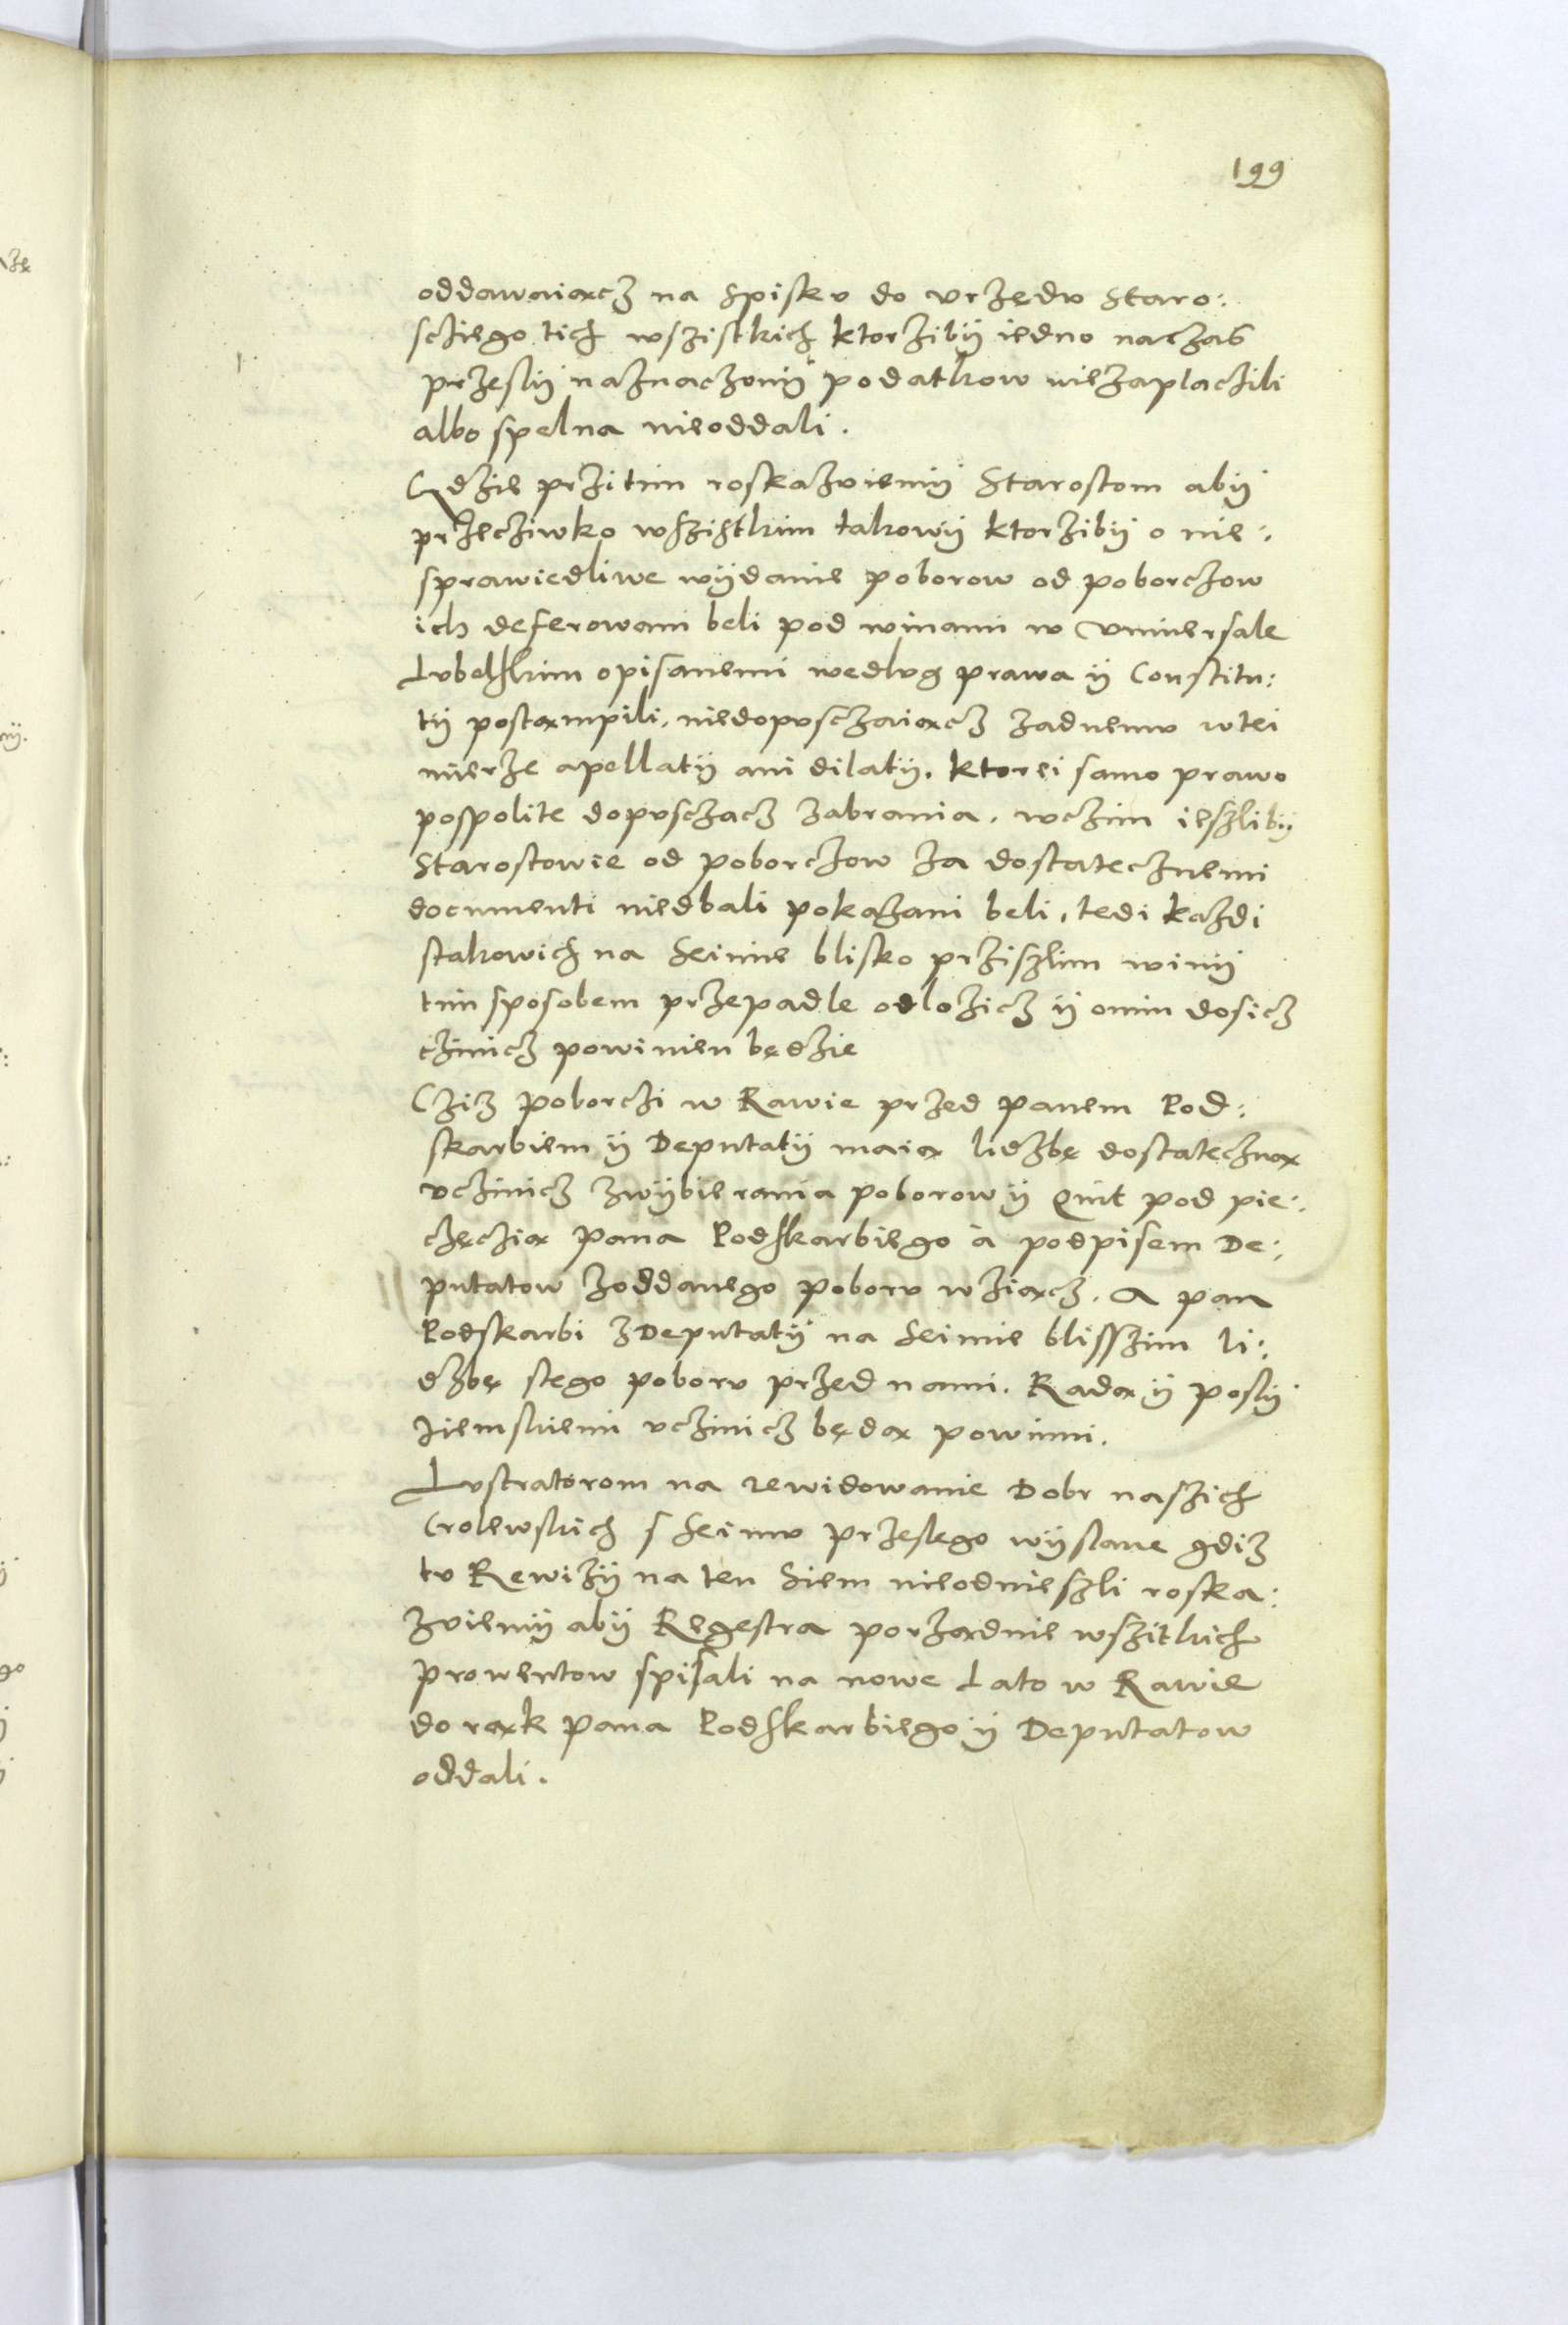 199
oddawaiącz na Spisku do vrzędu Staro:
scziego tich wszistkich ktorzibÿ iedno naczas
przeslÿ naznaczonÿ podatkow niezaplaczili
albo spelna nieoddali.
Gdzie przitim roskazuiemÿ Starostom abÿ
przecziwko wszistkim takowÿ ktorzibÿ o nie:
sprawiedliwe wÿdanie poborow od poborczow
ich deferowani beli pod winami w vniuersale
Lubelskim opisanemi wedlug prawa ÿ Constitu:
tÿ postąmpili, niedopusczaiącz zadnemu wtei
mierze apellatÿ ani dilatÿ. ktorei samo prawo
pospolite dopusczacz zabrania. wczim ieszlibÿ
Starostowie od poborczow za dostatecznemi
documenti niedbali pokazani beli, tedi kazdi
stakowich na Seimie blisko prziszlim winÿ
tim sposobem przepadle odlozicz ÿ onim dosicz
czinicz powinien będzie
Cziz poborczi w Rawie przed panem Pod:
skarbiem ÿ Deputatÿ maią lidzbę dostateczną
vczinicz zwÿbierania poborow ÿ Quit pod pie:
częczią pana Podskarbiego à podpisem De:
putatow zoddanego poboru wziącz. A pan
Podskarbi zDeputatÿ na Seimie blisszim li:
dzbę stego poboru przed nami. Radą ÿ poslÿ
ziemskiemi vczinicz będą powinni.
Lustratorom na rewidowanie Dobr naszich
Crolewskich s Seimu przeslego wÿslane gdiz
tu Rewizÿ na ten Siem nieodnieszli roska:
zuiemÿ abÿ Regestra porządnie wszitkich
prowentow spisali na nowe Lato w Rawie
do rąk pana Podskarbiego ÿ Deputatow
oddali.